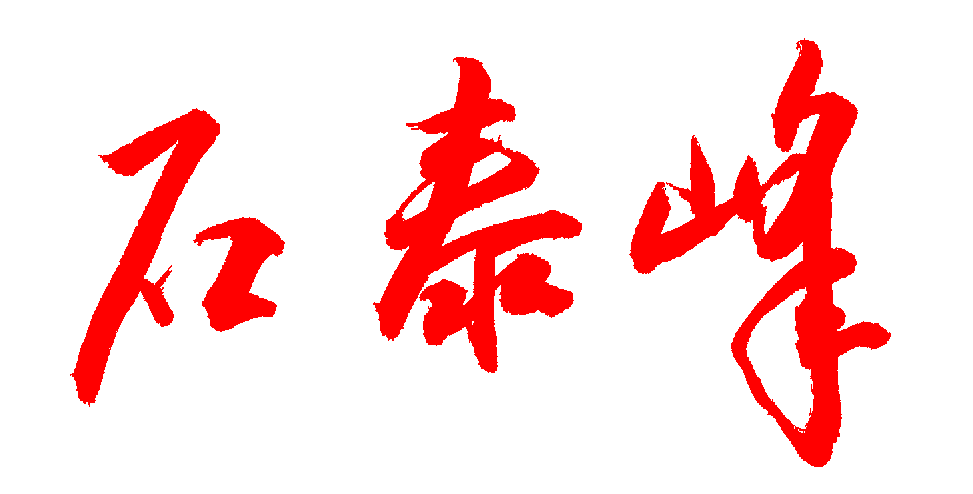 石泰峰